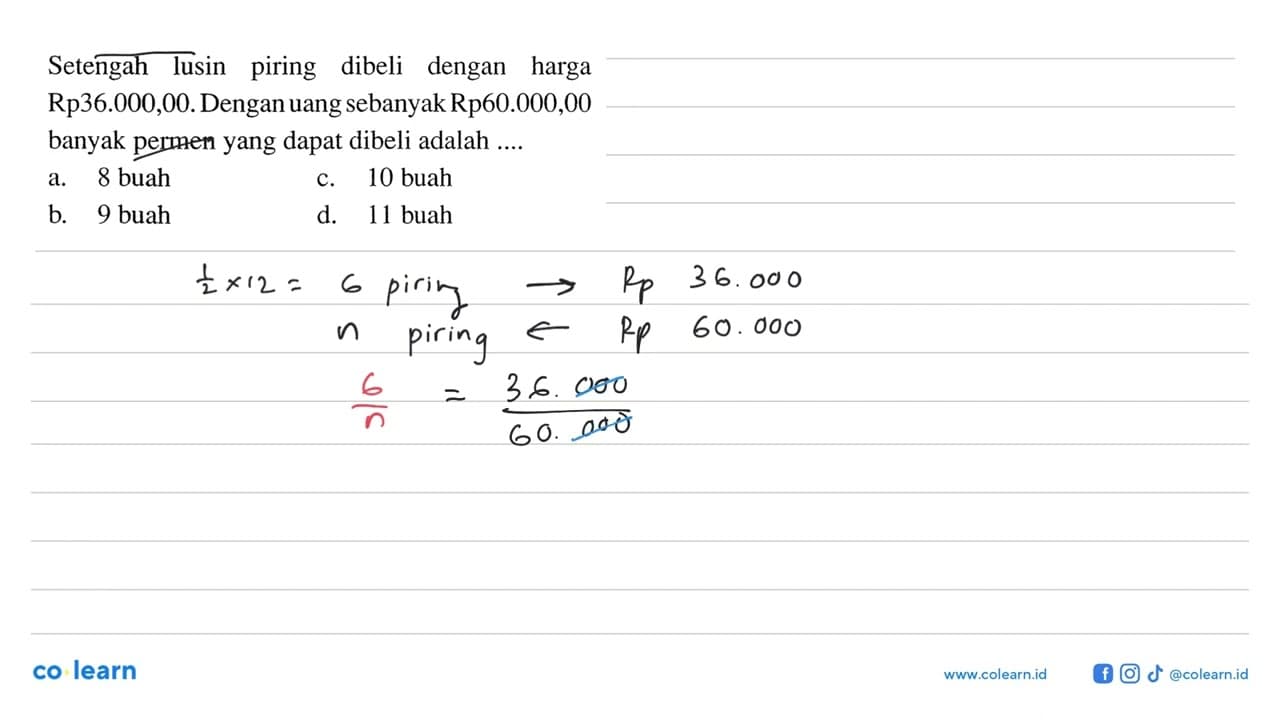 Setengah lusin piring dibeli dengan harga
Rp36.000,00. Dengan uang sebanyak Rp60.000,00
banyak permen yang dapat dibeli adalah ....
a. 8 buah c. 10 buah
b. 9 buah d. 11 buah
1/2 × 12 = 6 piring → Rp 36.000
n piring ← Rp 60.000
6/n = 36.000/60.000
co learn
www.colearn.id @colearn.id